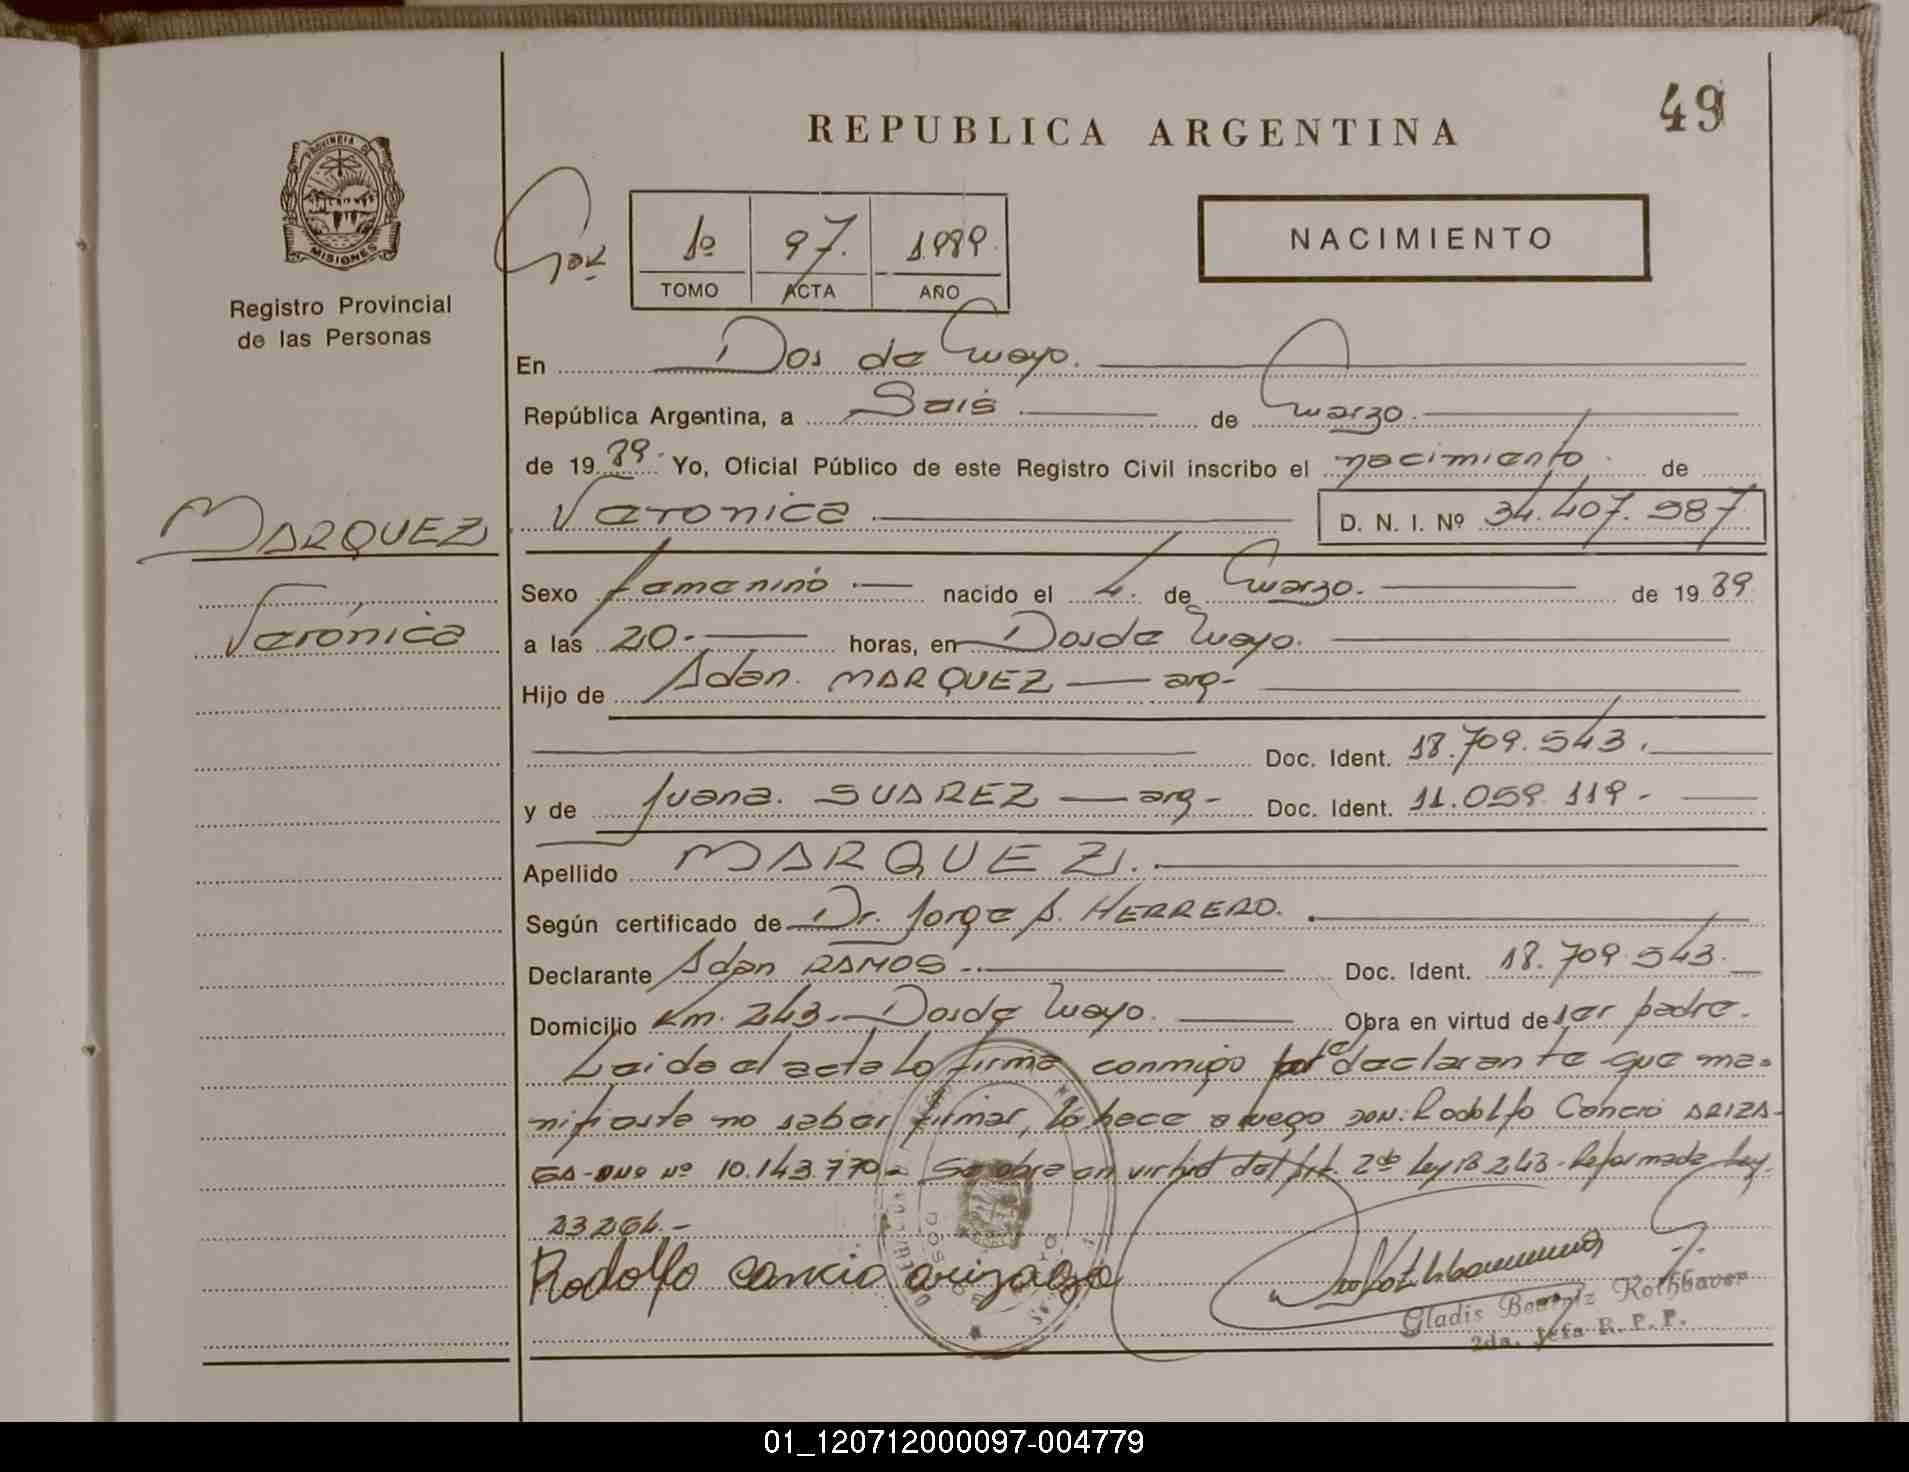 49
REPUBLICA ARGENTINA
PROVINCIA DE
MISIONES
Registro Provincial
de las Personas
1º 97. 1989.
TOMO ACTA AÑO
NACIMIENTO
En Dos de Mayo.
República Argentina, a Seis de Marzo.
de 1989. Yo, Oficial Público de este Registro Civil inscribo el nacimiento de
MARQUEZ
Veronica D. N. I. Nº 34.407.987
Verónica
Sexo femenino nacido el 4. de Marzo. de 1989
a las 20. horas, en Dos de Mayo.
Hijo de Adan. MARQUEZ — arg-
Doc. Ident. 18.709.543.
y de Juana. SUAREZ — arg- Doc. Ident. 11.059.119-
Apellido MARQUEZ.
Según certificado de Dr. Jorge A. HERRERO.
Declarante Adan RAMOS Doc. Ident. 18.709.543.
Domicilio Km. 243. Dos de Mayo. Obra en virtud de ser padre.
Leida el acta lo firma conmigo el declarante que ma-
nifieste no saber firmar, lo hece a ruego DON: Rodolfo Cancio ARIZA-
GA-DNI Nº 10.143.770- Se obra en virtud del Art. 2do Ley 18243- Reformada Ley.
23264.-
Rodolfo Cancio arizaga
Gladis Beatriz Rothbauer
2da. Jefa R. P. P.
01_120712000097-004779